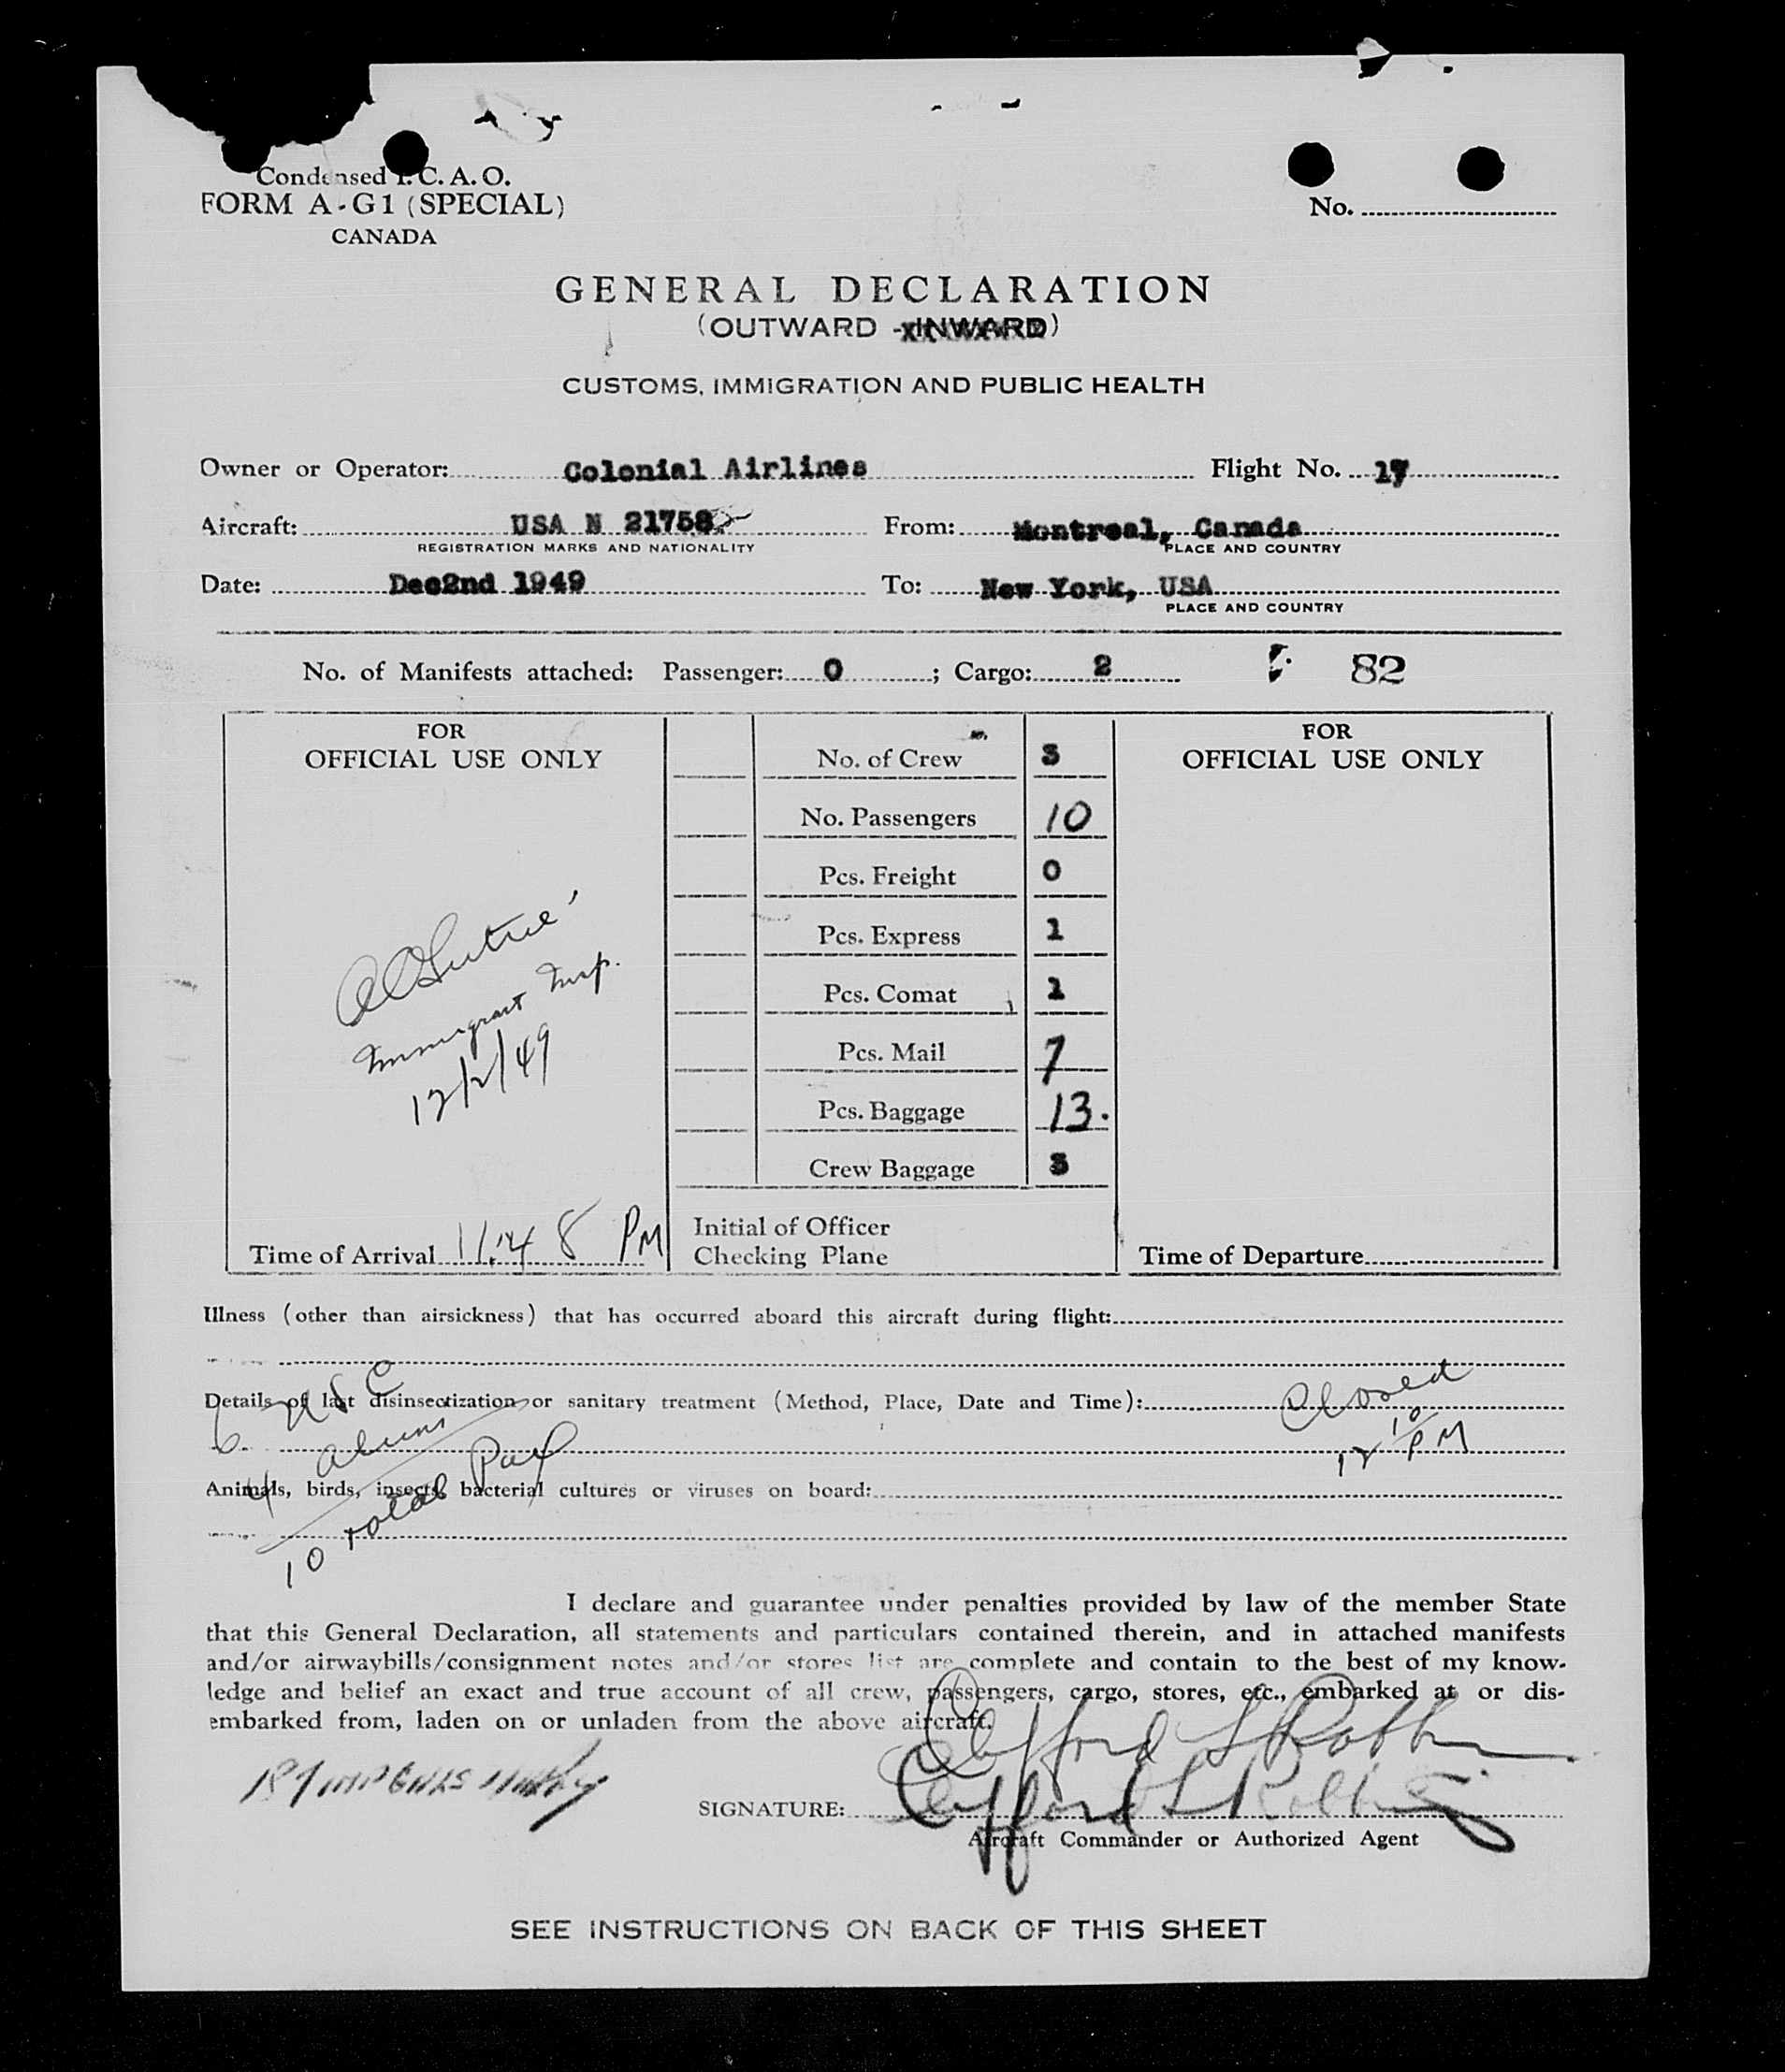 Condensed I. C. A. O.
FORM A-G1 (SPECIAL)
CANADA
No.
GENERAL DECLARATION
(OUTWARD - INWARD)
CUSTOMS, IMMIGRATION AND PUBLIC HEALTH
Owner or Operator: Colonial Airlines Flight No. 17
Aircraft: USA N 21758 From: Montreal, Canada
REGISTRATION MARKS AND NATIONALITY PLACE AND COUNTRY
Date: Dec2nd 1949 To: New York, USA
PLACE AND COUNTRY
No. of Manifests attached: Passenger: 0 ; Cargo: 2 82
FOR
OFFICIAL USE ONLY
Immigrant Insp.
12/2/49
Time of Arrival 11:48 PM
No. of Crew 3
No. Passengers 10
Pcs. Freight 0
Pcs. Express 1
Pcs. Comat 1
Pcs. Mail 7
Pcs. Baggage 13.
Crew Baggage 3
Initial of Officer
Checking Plane
FOR
OFFICIAL USE ONLY
Time of Departure
Illness (other than airsickness) that has occurred aboard this aircraft during flight:
Details of last disinsectization or sanitary treatment (Method, Place, Date and Time):
Closed
12 10 PM
6 USC
4 aliens
10 total Pax
Animals, birds, insects, bacterial cultures or viruses on board:
I declare and guarantee under penalties provided by law of the member State
that this General Declaration, all statements and particulars contained therein, and in attached manifests
and/or airwaybills/consignment notes and/or stores list are complete and contain to the best of my know-
ledge and belief an exact and true account of all crew, passengers, cargo, stores, etc., embarked at or dis-
embarked from, laden on or unladen from the above aircraft.
Clifford L Robbins
SIGNATURE: Clifford L Robbins
Aircraft Commander or Authorized Agent
SEE INSTRUCTIONS ON BACK OF THIS SHEET